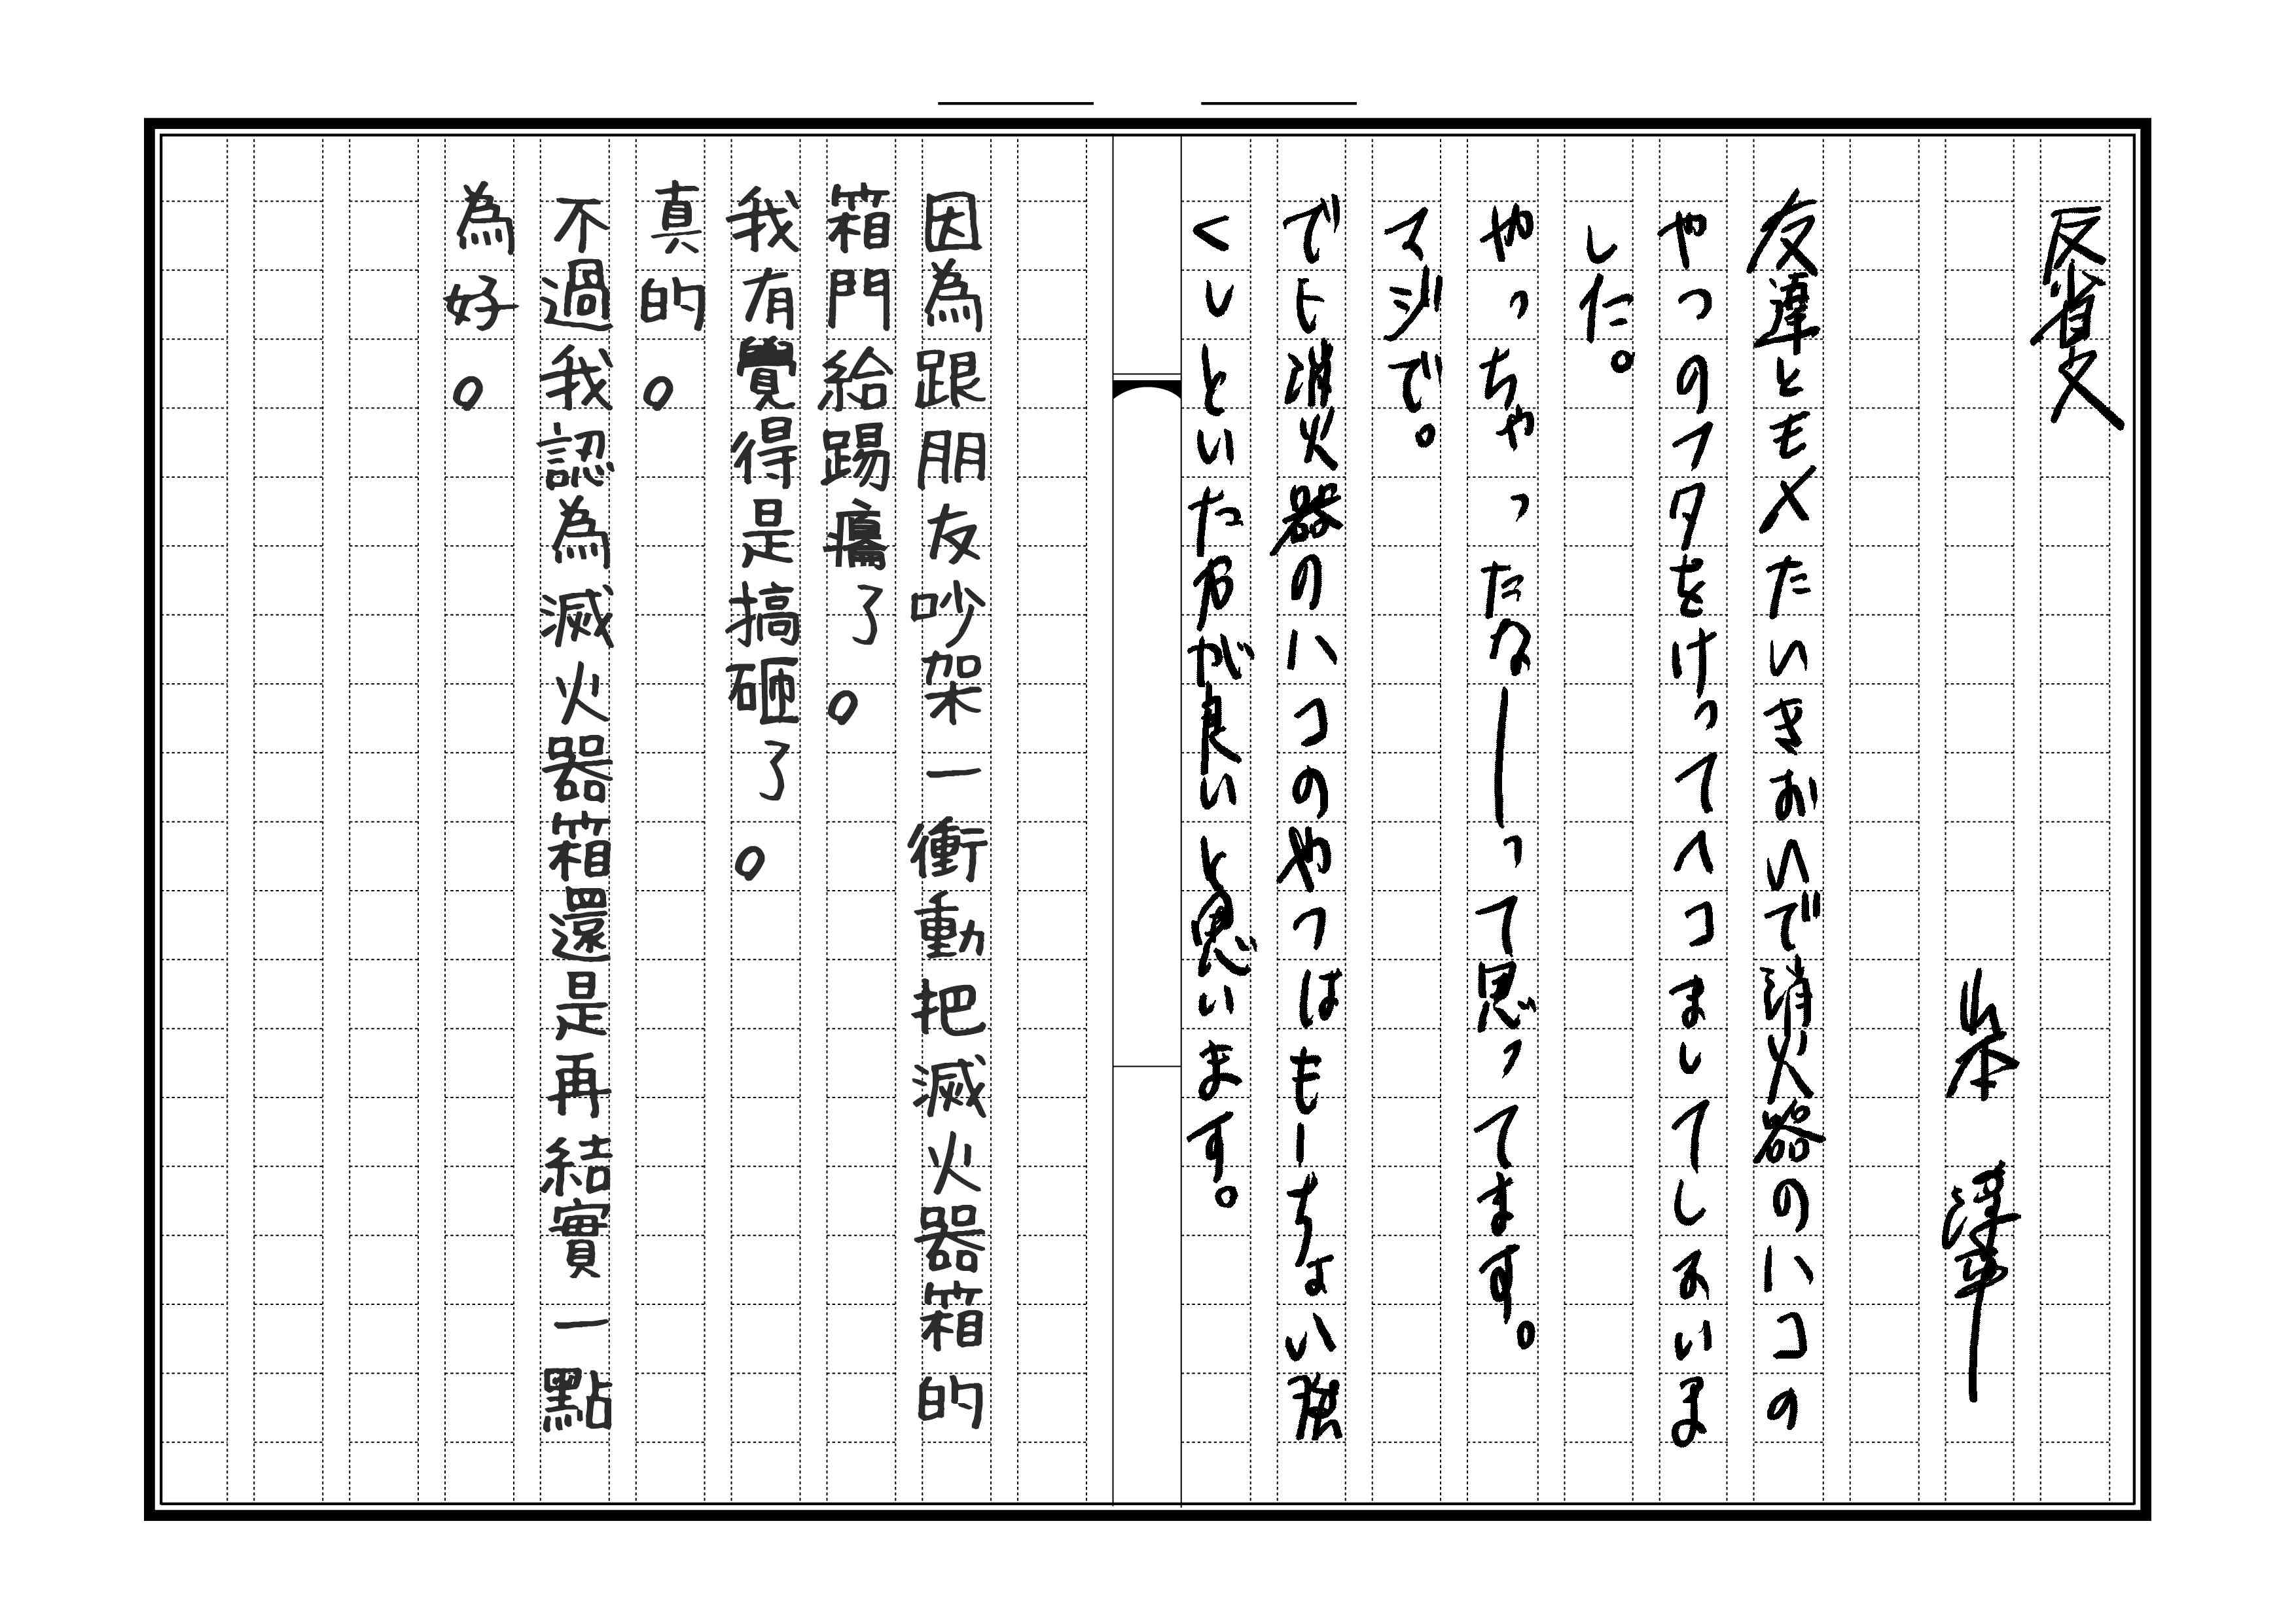 反省文
山本 澤車
友達ともメたいきおいで消火器のハコの
やつのフタをけってヘコましてしまいま
した。
やっちゃったなーって思ってます。
マジで。
でも消火器のハコのやつはもーちょい強
くしといた方が良いと思います。
因為跟朋友吵架一衝動把滅火器箱的
箱門給踢癟了。
我有覺得是搞砸了。
真的。
不過我認為滅火器箱還是再結實一點
為好。